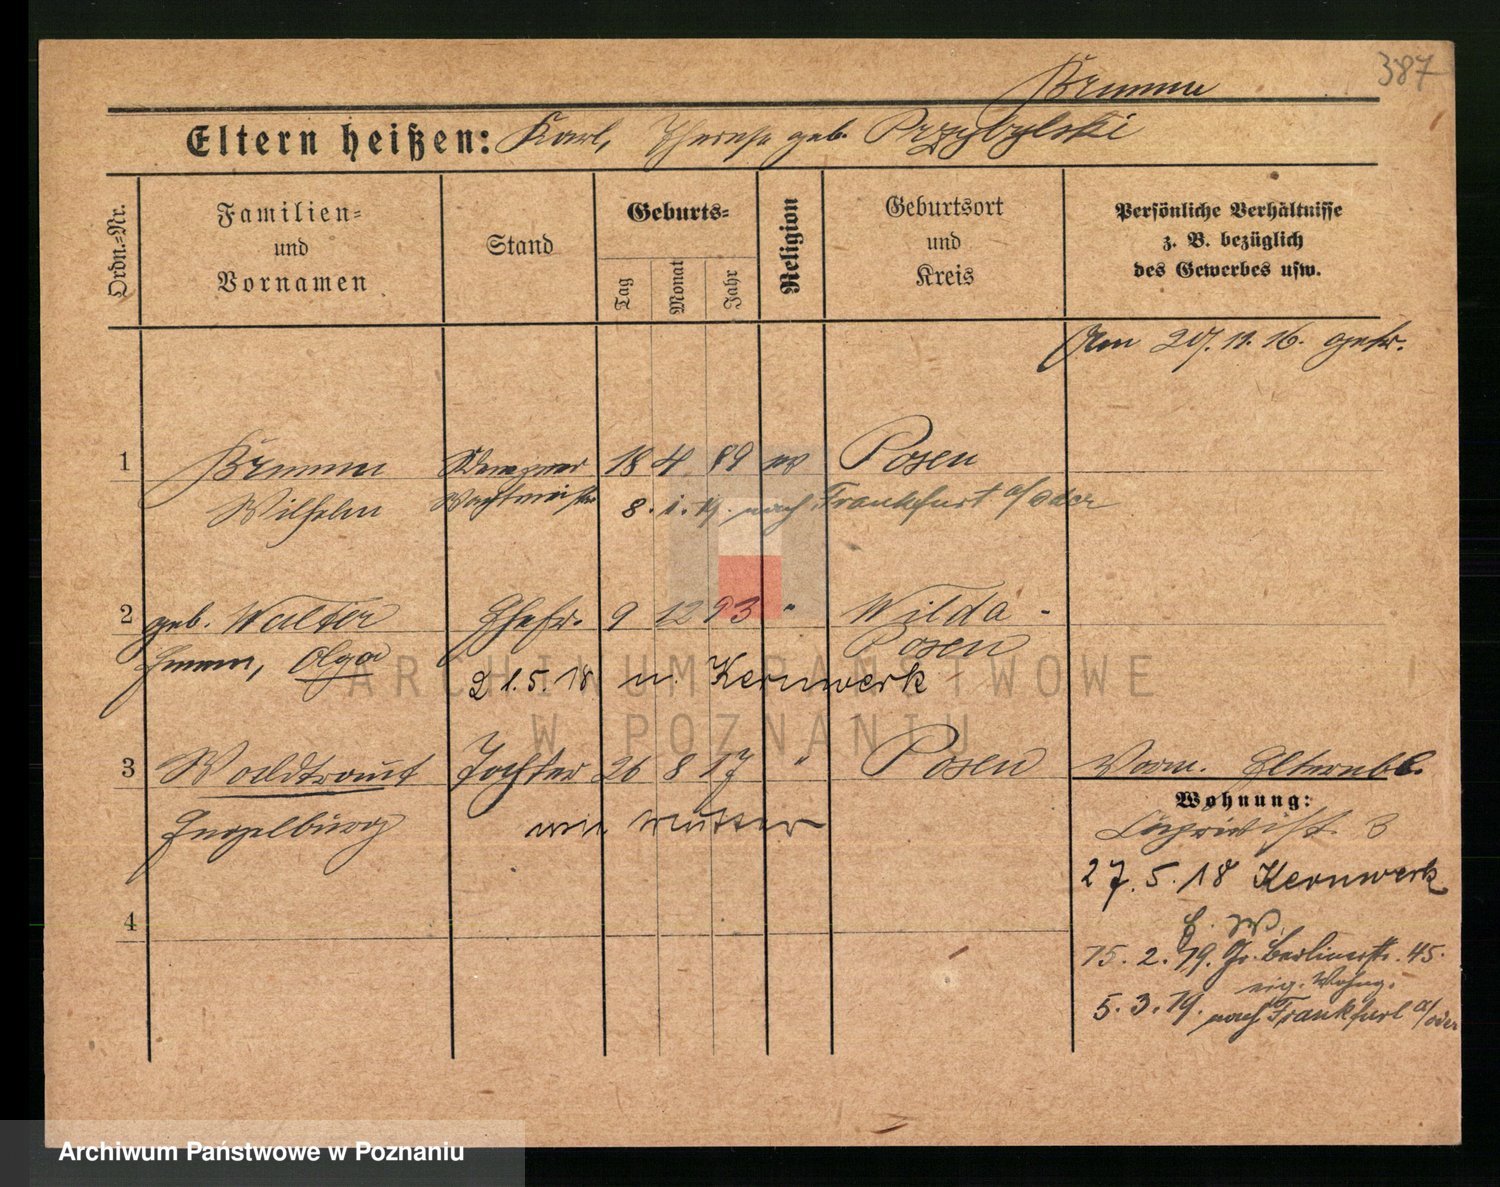 387
Krumm
Eltern heißen: Karl, Therese geb. Przybylski
Ordn.=Nr.
Familien= und Vornamen
Stand
Geburts=
Tag
Monat
Jahr
Religion
Geburtsort und Kreis
Persönliche Verhältnisse
z. B. bezüglich
des Gewerbes usw.
Am 27. 11. 16. getr.
1 18 4 89 ev Posen
Wilhelm Wachtmeister 8. 1. 19. nach Frankfurt a/oder
2 geb. Walter Ehefr. 9 12 93 " Wilda -
Posen
Emma, Olga 21. 5. 18 n. Kernwerk
3 Waldtraut Tochter 26 8 17 " Posen
Engelburg wie Mutter
Worm. Elternbl.
Wohnung:
3
27. 5. 18 Kernwerk
b. W.
15. 2. 19. Gr. Berlinerstr. 45.
eig. Wohng.
5. 3. 19. nach Frankfurt a/oder
4
ARCHIWUM PAŃSTWOWE
W POZNANIU
Archiwum Państwowe w Poznaniu